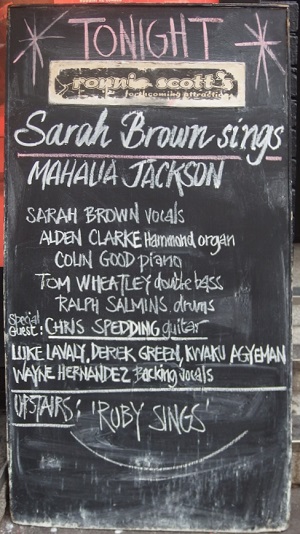 TONIGHT
ronnie scott's
forthcoming attraction
Sarah Brown sings
MAHALIA JACKSON
SARAH BROWN vocals
ALDEN CLARKE Hammond organ
COLIN GOOD piano
TOM WHEATLEY double bass
RALPH SALMINS. drums
Special Guest: CHRIS SPEDDING guitar
LUKE LAVALY, DEREK GREEN, KWAKU AGYEMAN
WAYNE HERNANDEZ Backing vocals
UPSTAIRS: 'RUBY SINGS'